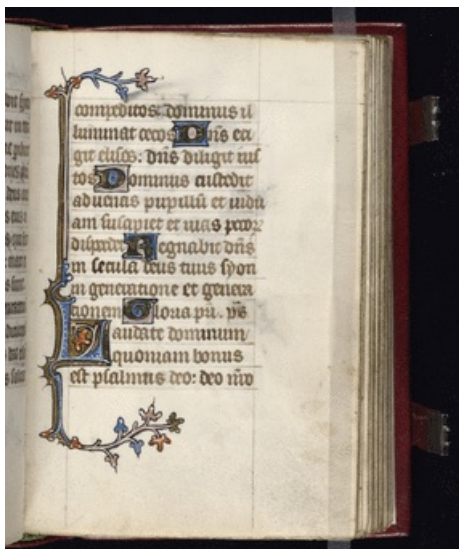 compeditos: dominus il
luminat cecos Dñs eri
git elisos: dñs diligit ius
tos Dominus custodit
aduenas pupillũ et uidu
am suscipiet et uias pccoꝝ
disperdet Regnabit dñs
in secula deus tuus syon
in generatione et genera
tionem Gloria pri. ps
Laudate dominum
quoniam bonus
est psalmus deo: deo nr̃o